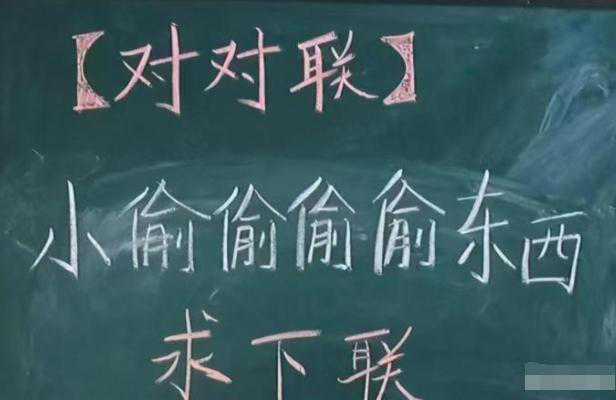 【对对联】
小偷偷偷偷东西
求下联